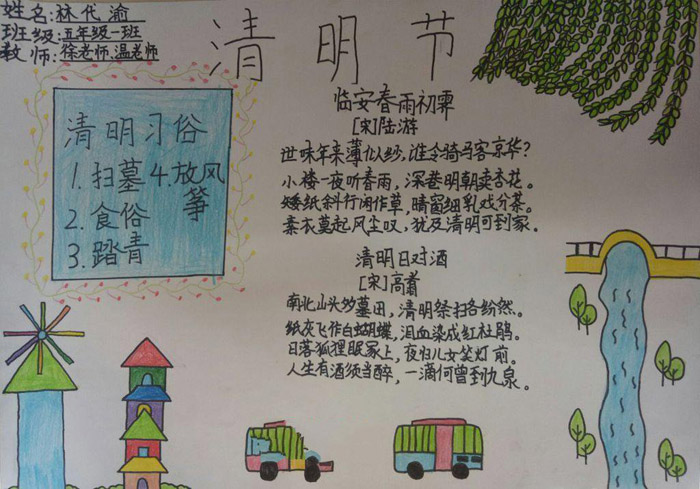 姓名:林代渝
班级:五年级一班
教师:徐老师.温老师
清明节
清明习俗
1.扫墓 4.放风筝
2.食俗
3.踏青
临安春雨初霁
[宋]陆游
世味年来薄似纱,谁令骑马客京华?
小楼一夜听春雨,深巷明朝卖杏花。
矮纸斜行闲作草,晴窗细乳戏分茶。
素衣莫起风尘叹,犹及清明可到家。
清明日对酒
[宋]高翥
南北山头多墓田,清明祭扫各纷然。
纸灰飞作白蝴蝶,泪血染成红杜鹃。
日落狐狸眠冢上,夜归儿女笑灯前。
人生有酒须当醉,一滴何曾到九泉。